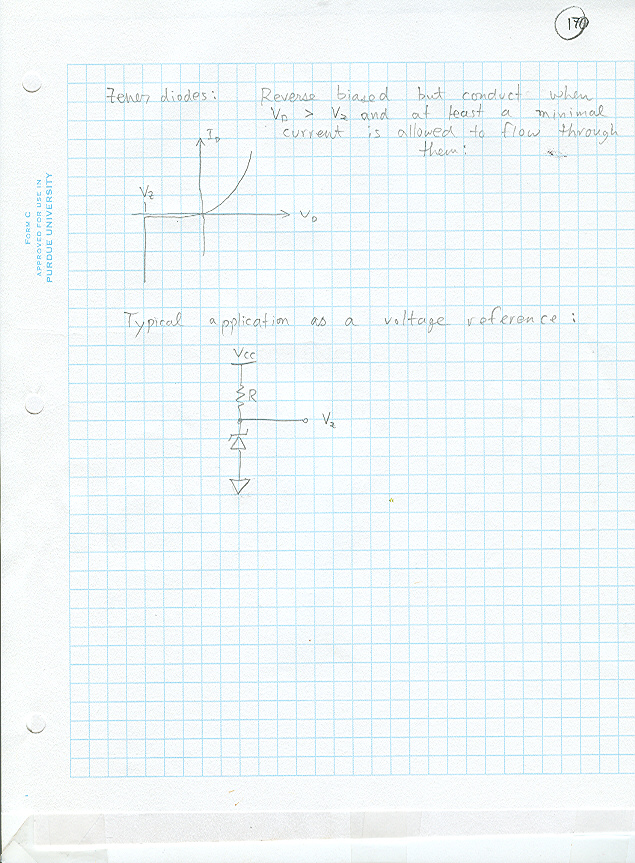 170
Zener diodes: Reverse biased but conduct when
V_D > V_Z and at least a minimal
current is allowed to flow through
them:
I_D
V_Z
V_D
FORM C
APPROVED FOR USE IN
PURDUE UNIVERSITY
Typical application as a voltage reference:
Vcc
R
V_Z